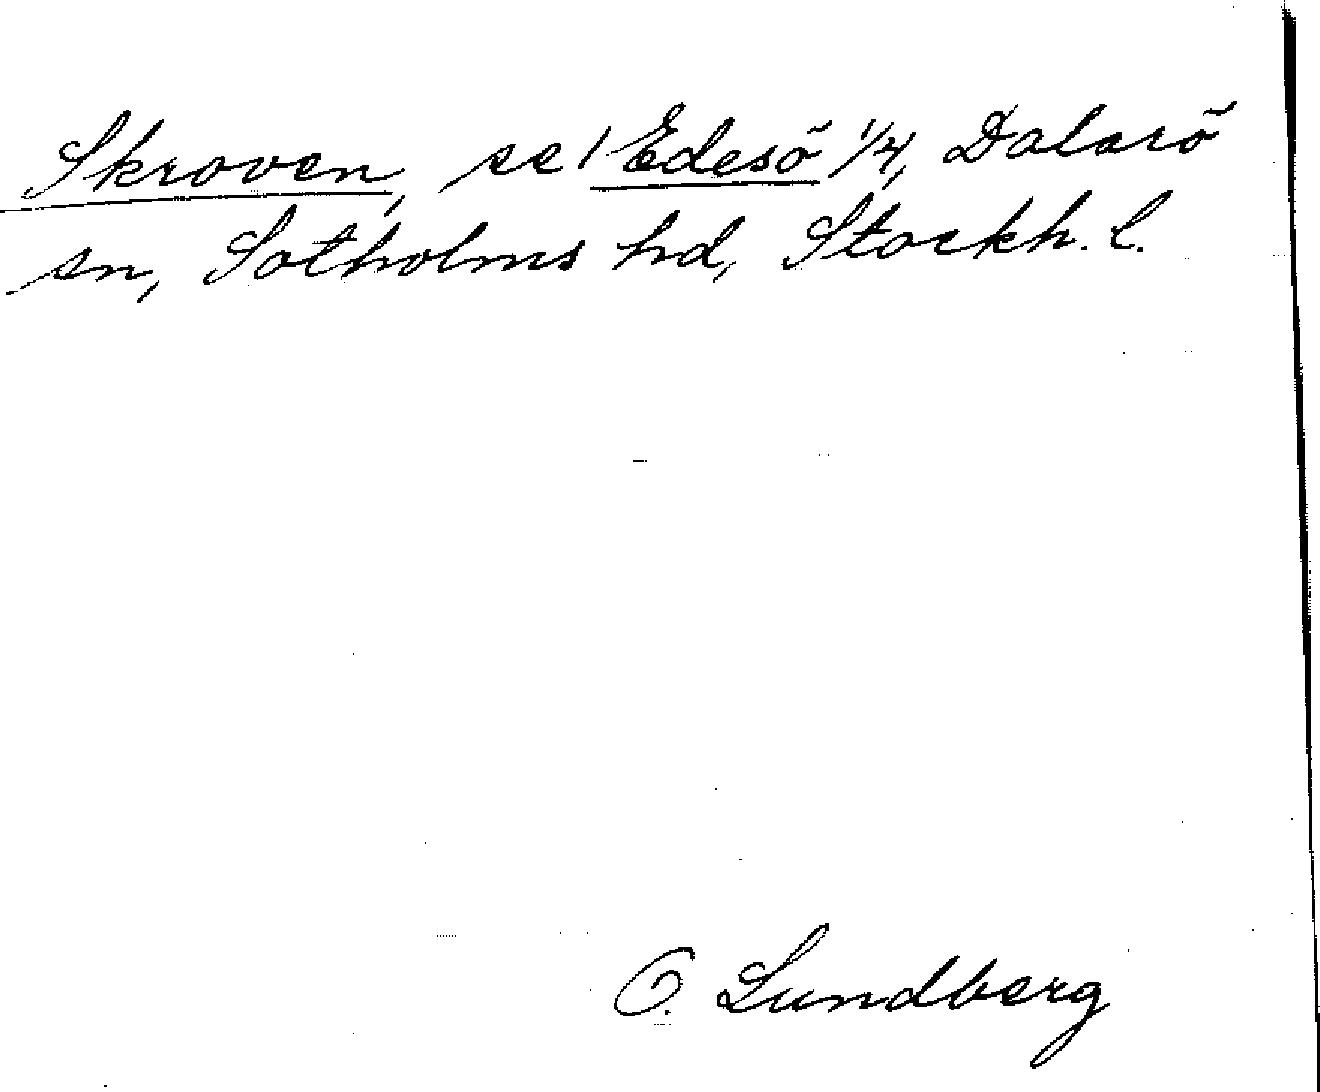 Skroven, se 1 Edesö 1/4, Dalarö
sn, Sotholms hd, Stockh. l.
O. Lundberg